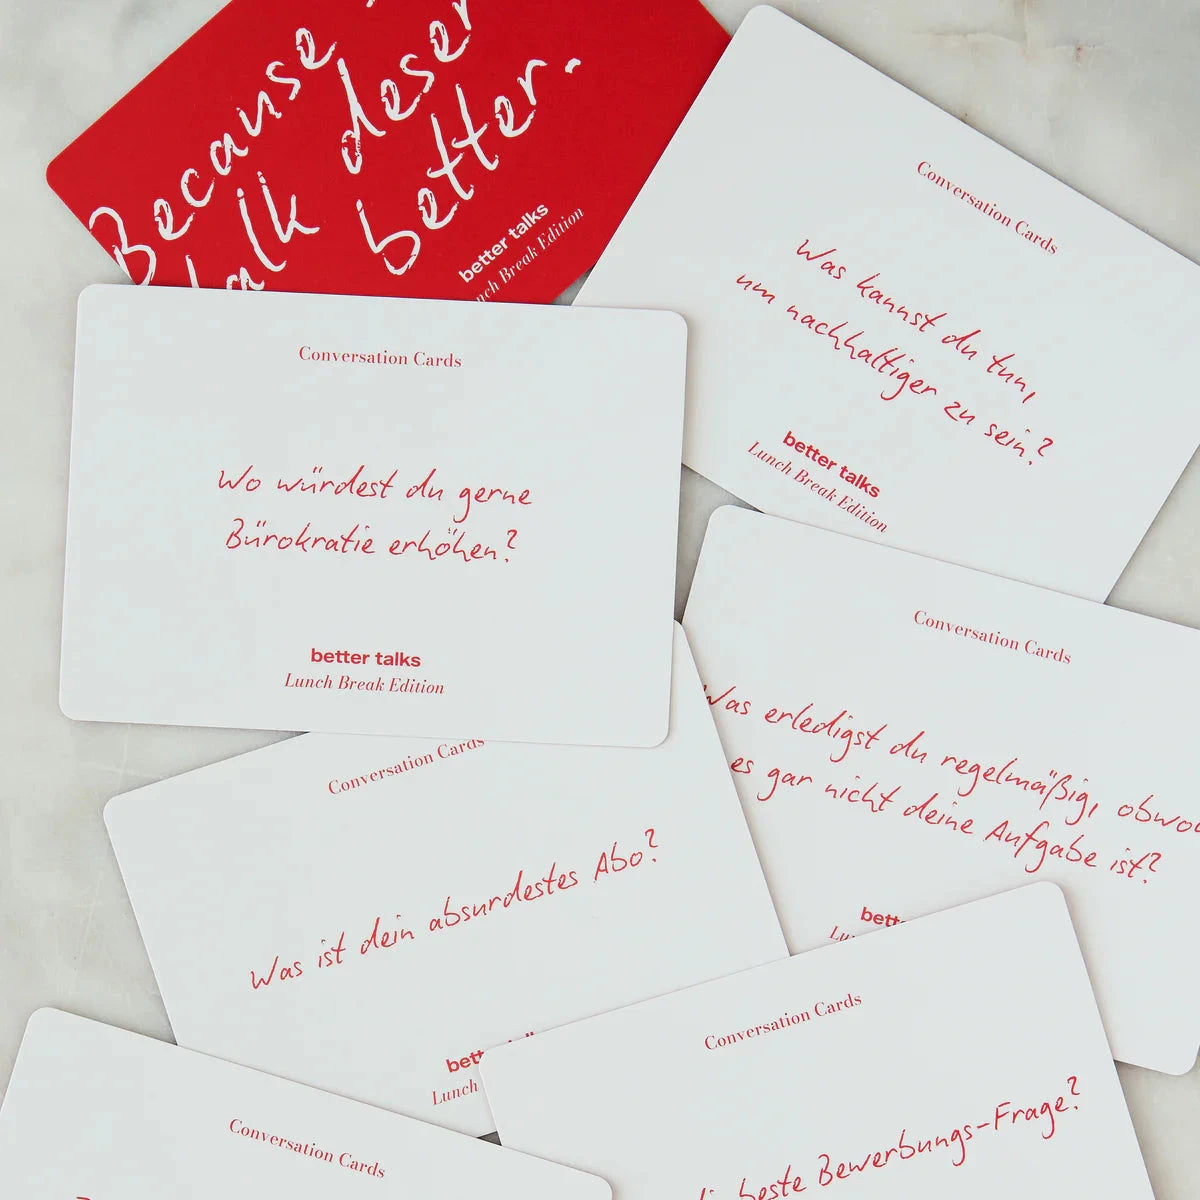 Because
talk
better.
better talks
Lunch Break Edition
Conversation Cards
Was kannst du tun,
um nachhaltiger zu sein?
better talks
Lunch Break Edition
Conversation Cards
Wo würdest du gerne
Bürokratie erhöhen?
better talks
Lunch Break Edition
Conversation Cards
Was erledigst du regelmäßig,
es gar nicht deine Aufgabe ist?
Conversation Cards
Was ist dein absurdestes Abo?
Lunch
Conversation Cards
beste Bewerbungs-Frage?
Conversation Cards